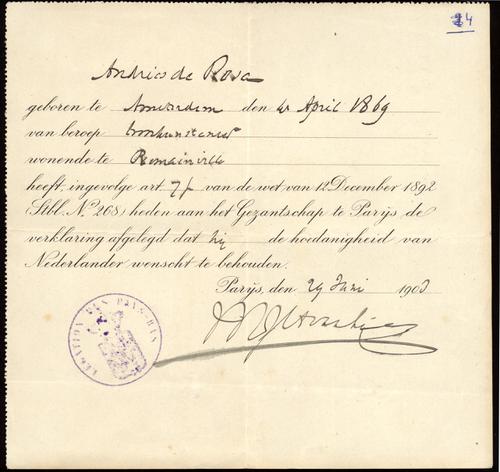 24
Andries de Rosa
geboren te Amsterdam den 4 April 1869
van beroep toonkunstenaar
wonende te Romainville
heeft, ingevolge art 7/ van de wet van 12 December 1892
(Stbl. No. 268) heden aan het Gezantschap te Parijs de
verklaring afgelegd dat hij de hoedanigheid van
Nederlander wenscht te behouden.
Parijs, den 29 Juni 1903
LEGATION DES PAYS-BAS